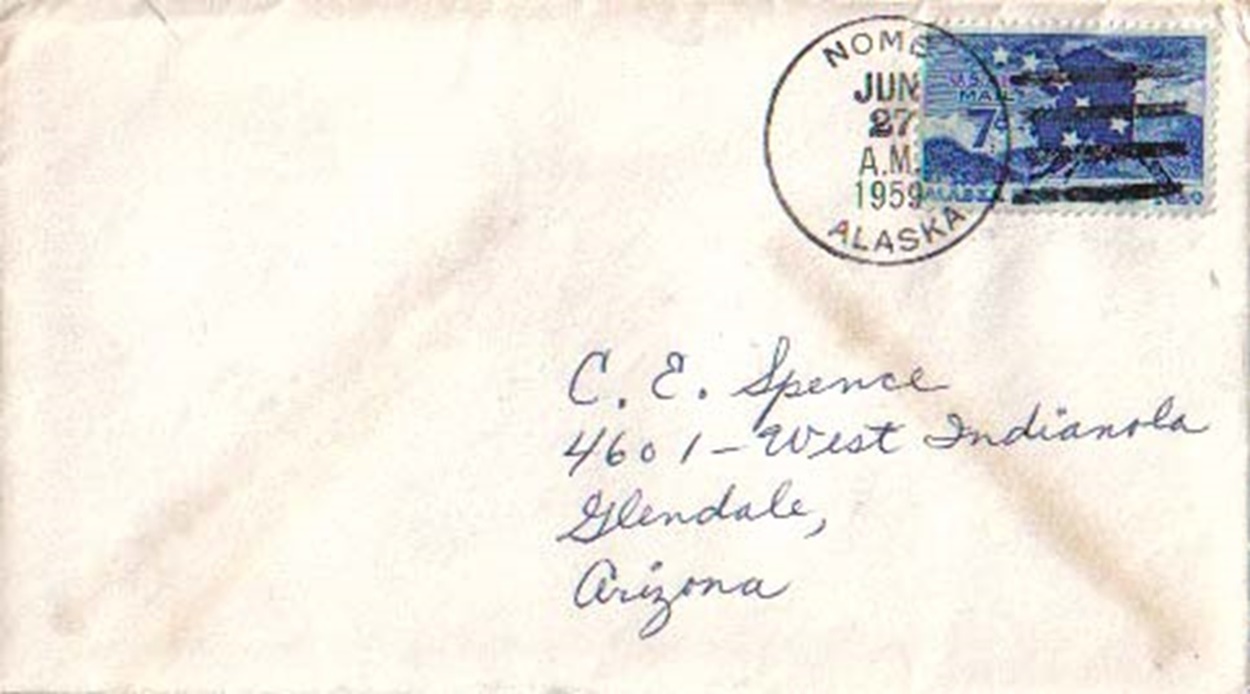 NOME
JUN
27
A.M.
1959
ALASKA
U.S. AIR
MAIL
7¢
ALASKA 1959
C. E. Spence
4601-West Indianola
Glendale,
Arizona